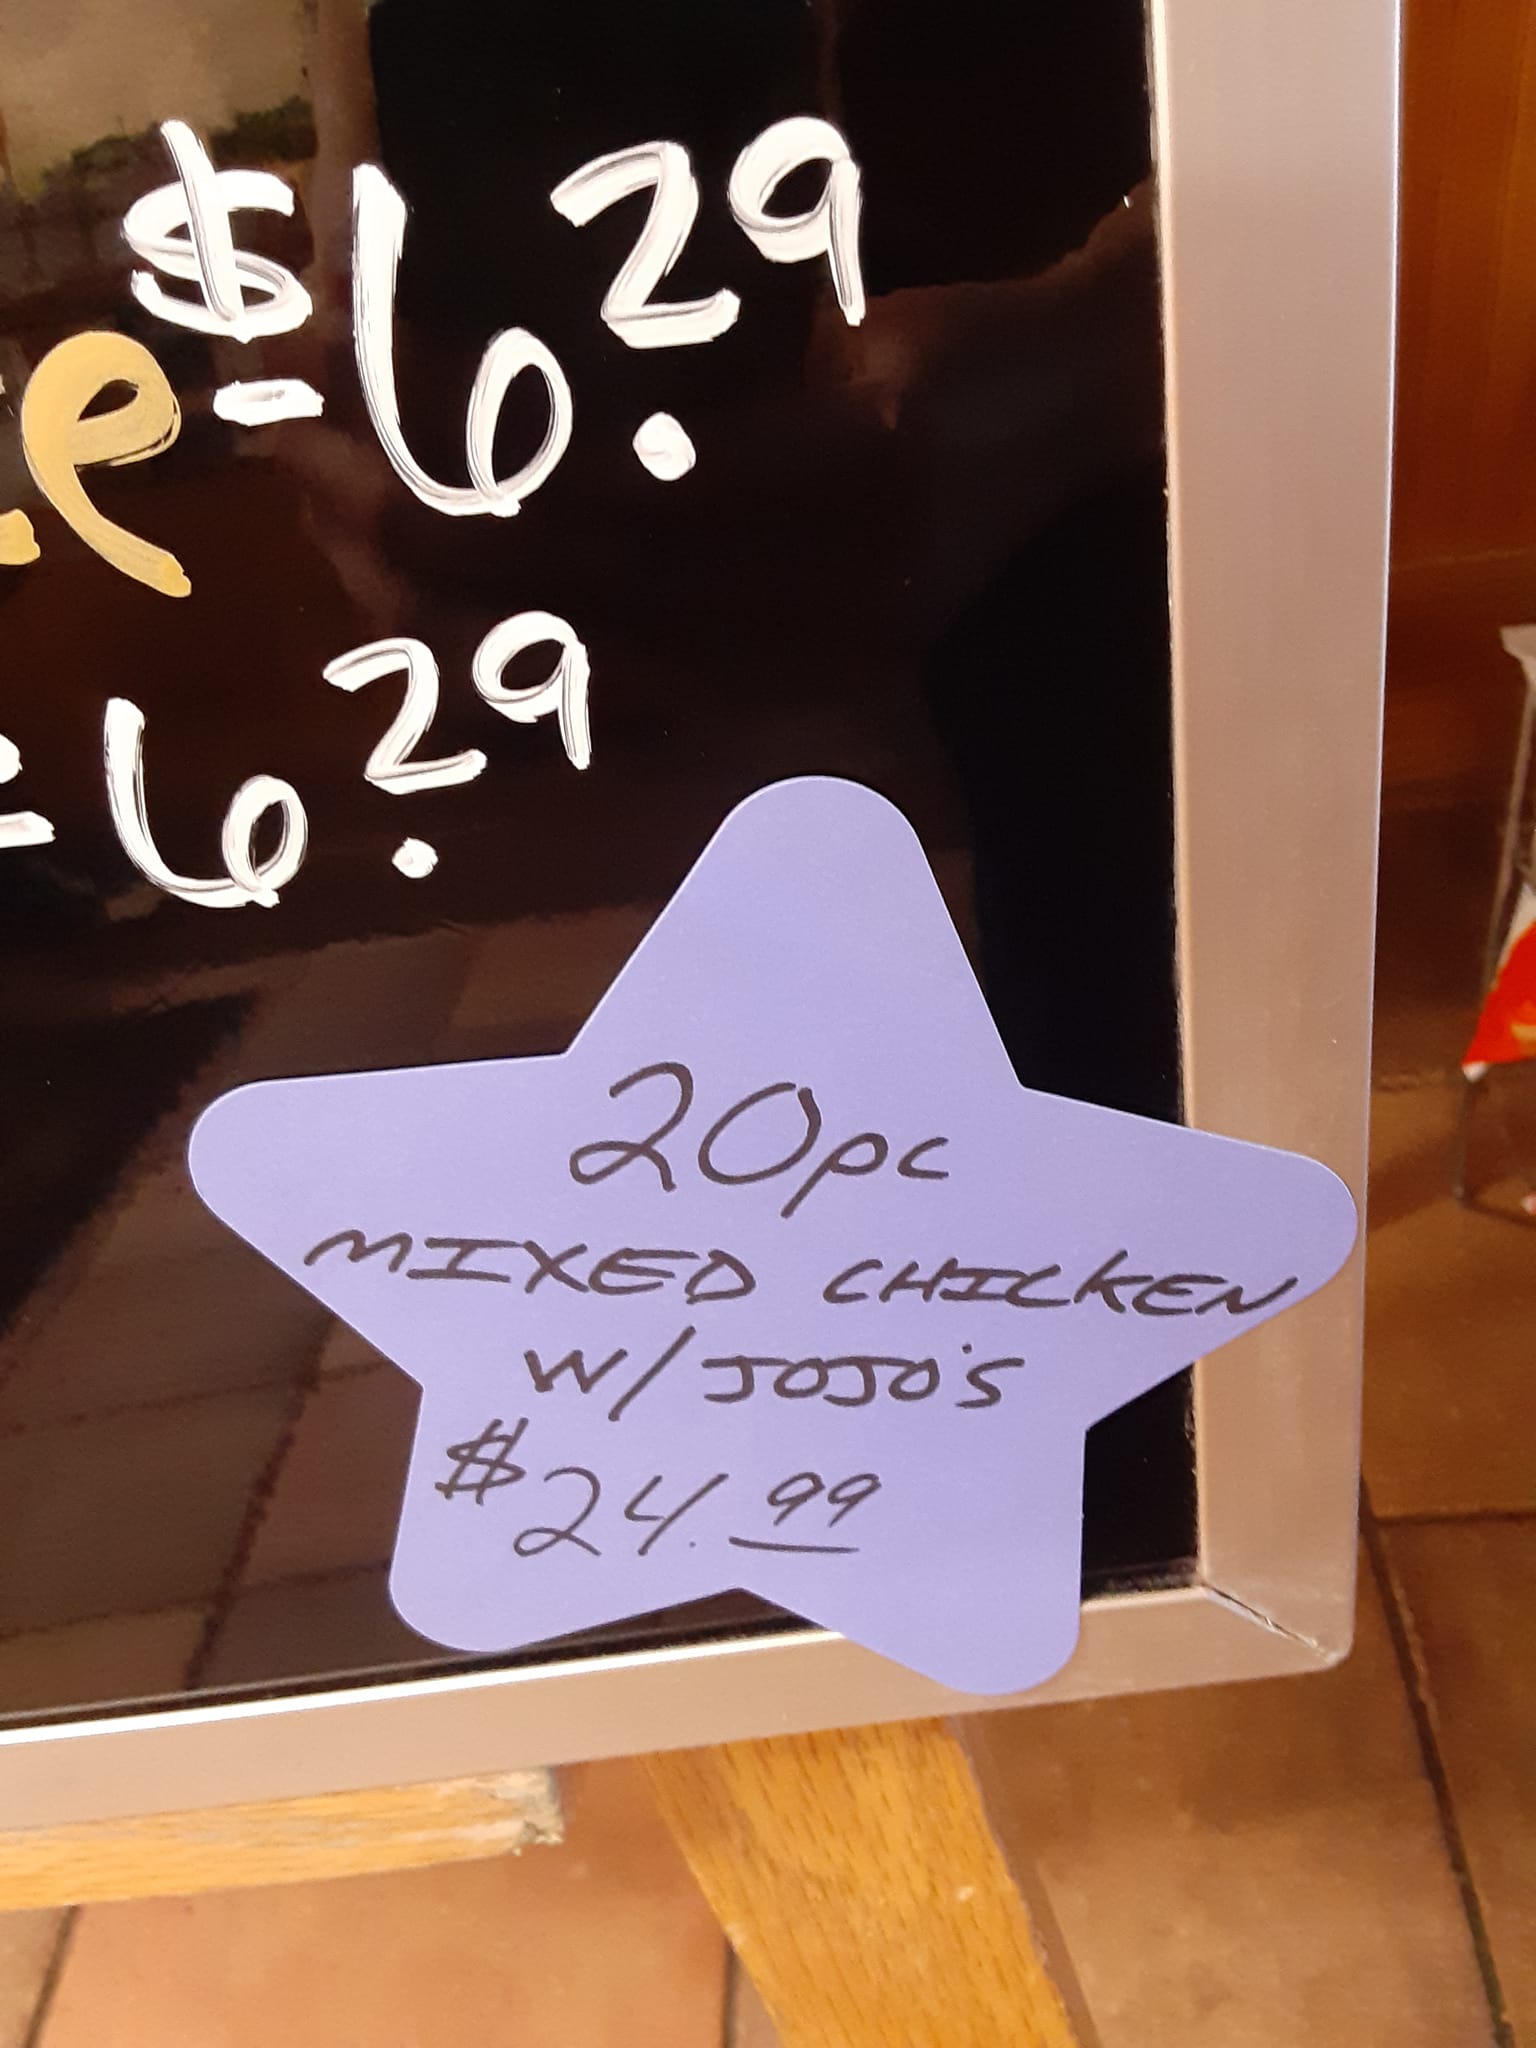 $6.29
6.29
20pc
MIXED CHICKEN
W/JOJO'S
$24.99